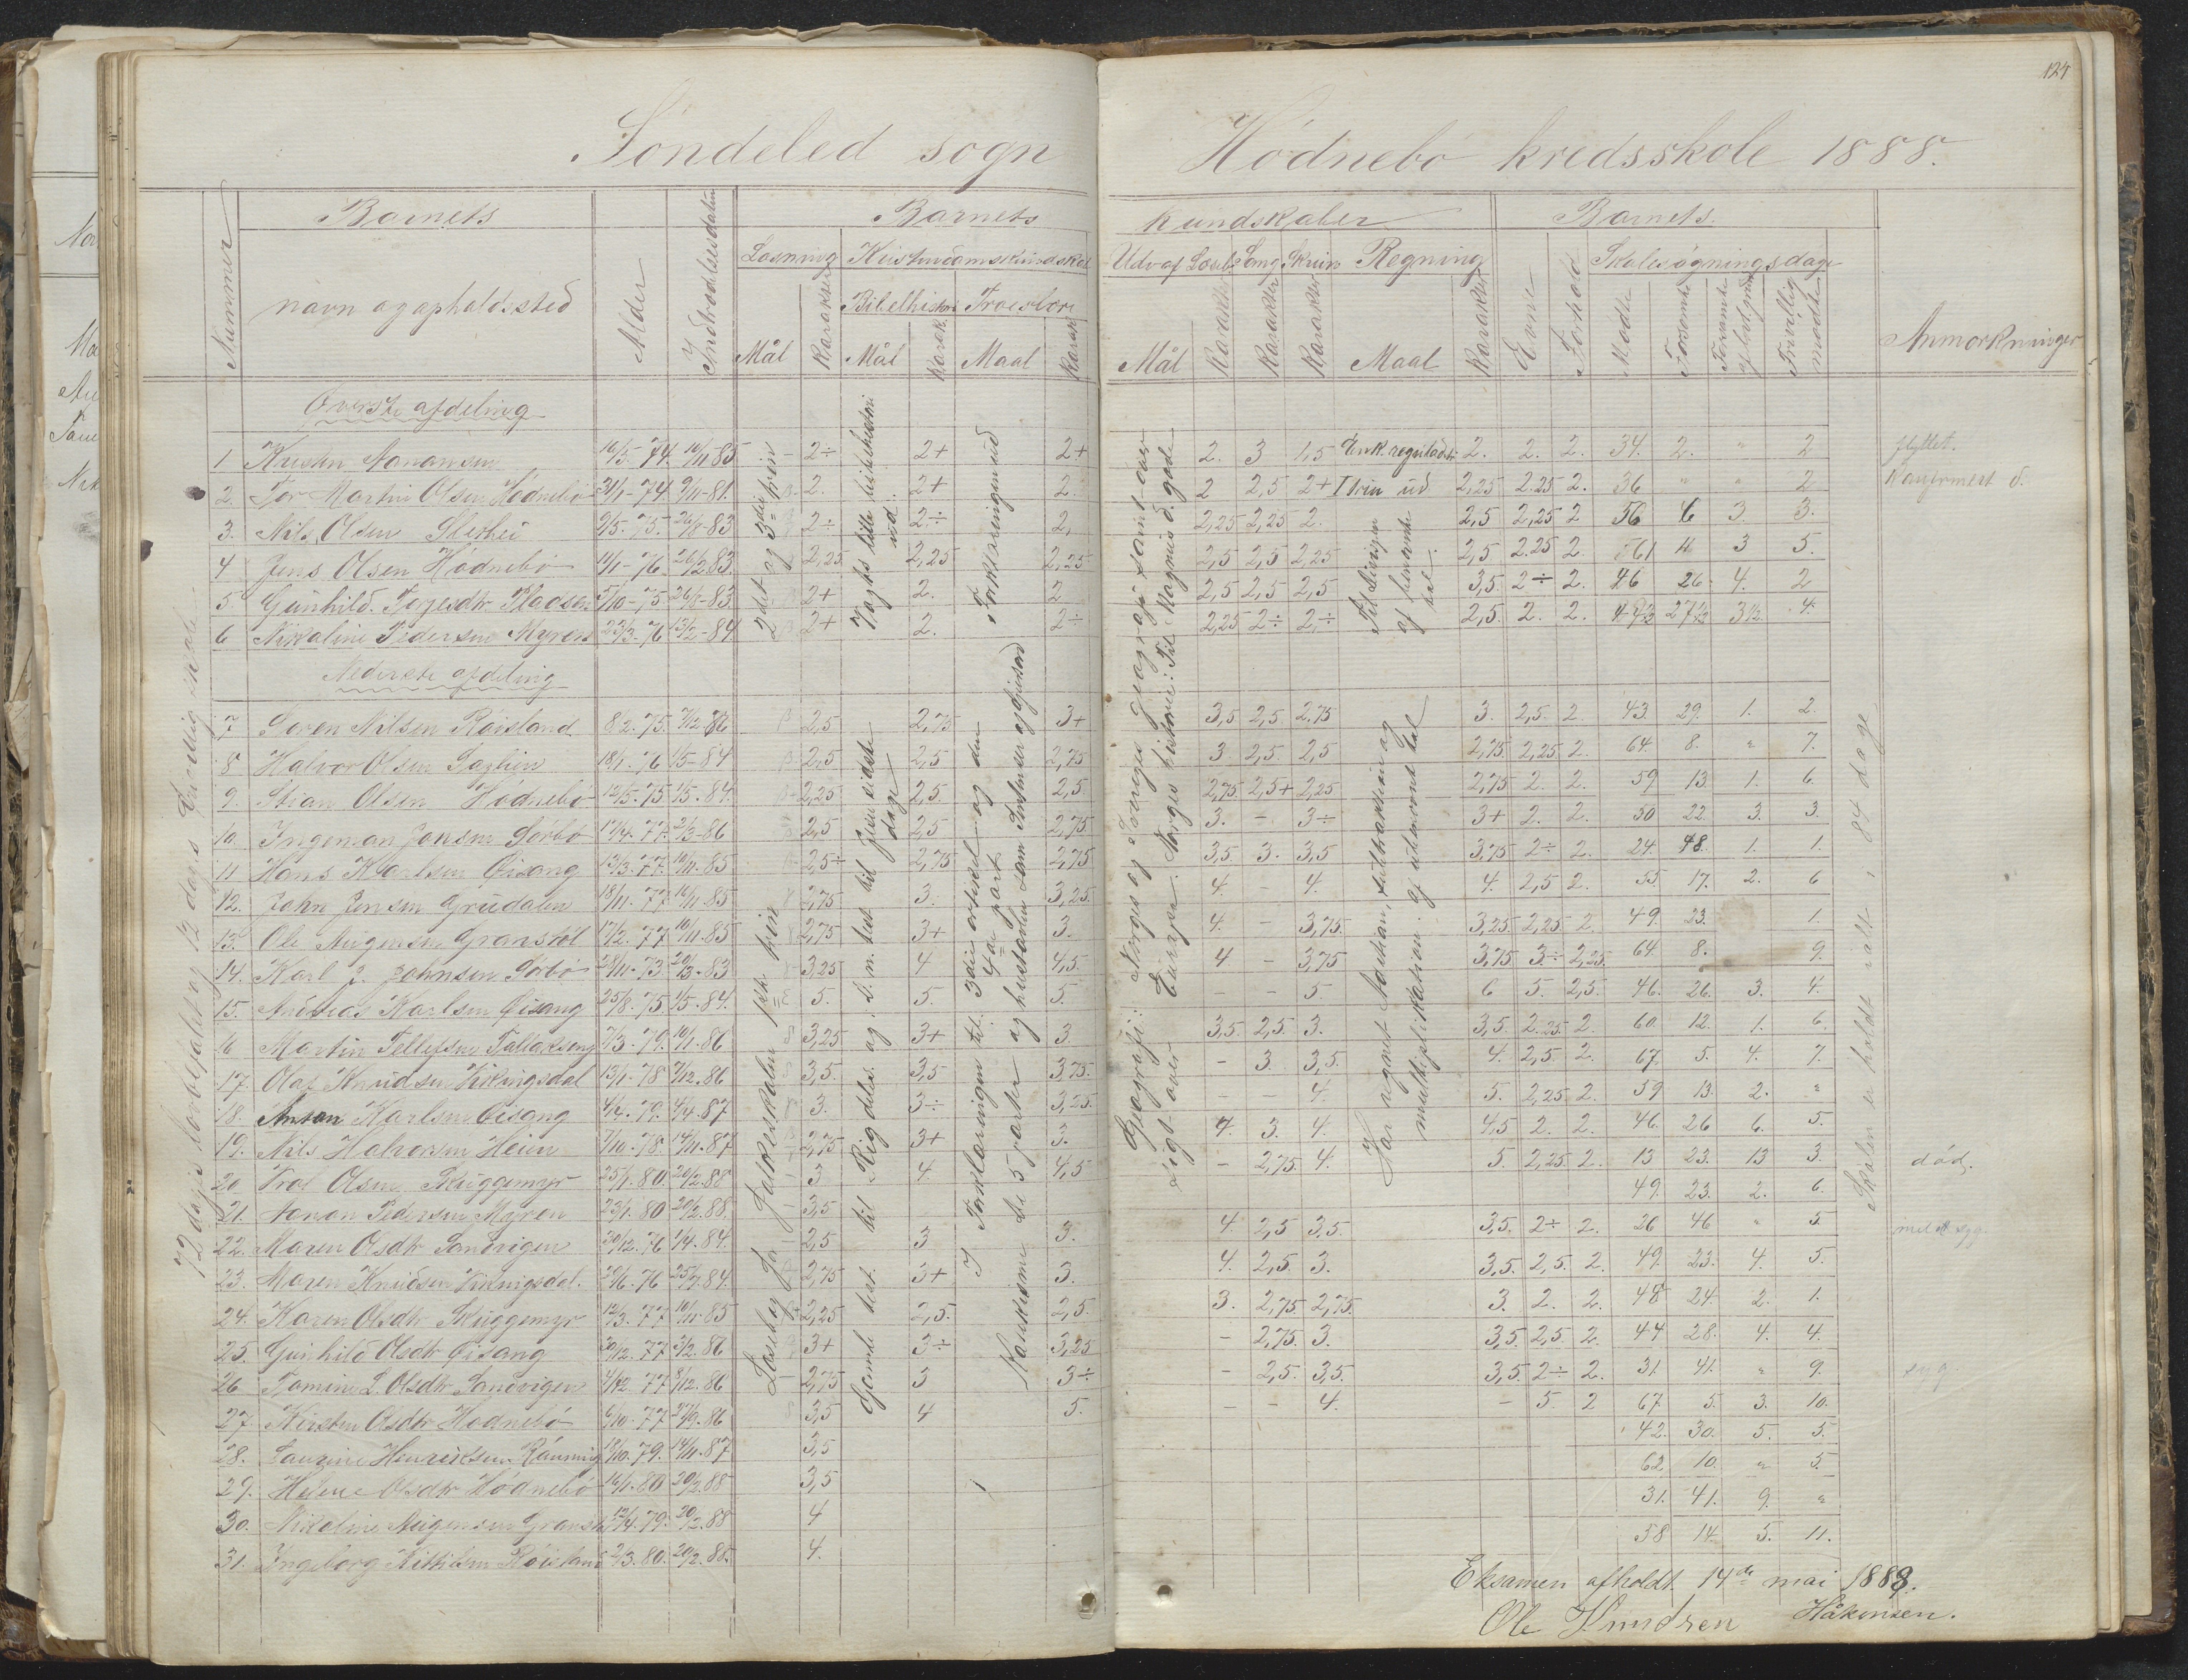 124
Söndeled sogn Hödnebö kredsskole 1888.
Nummer
Barnets
navn og opholdssted
Alder
Indtrædelsesdatum
Barnets kundskaber
Læsning Kristendomskundskab
Bibelhistori Troeslære
Mål Karakter Mål Karak Maal Karak
Udv. af Læseb. Sang Skriv. Regning
Mål Karakter Karakter Karakter Maal Karakter
Barnets
Evne Forhold
Skolesøgningsdage
Mødte Forsømte Frivillig mødte
Anmærkninger
Øverste afdeling
1 Kristen Aanonsen 16/5-74. 10/11 85 2÷ 2+ 2+ 2. 3 1,5 Enk. reguladetri 2. 2. 2. 34. 2. " 2 flyttet.
2. Tor Martin Olsen Hødnebö 31/1-74 9/11-81. 2. 2+ 2. 2 2,5 2+ 2,25 2.25 2. 36 " " 2 Konfirmert d.
3. Nils Olsen 9/5-75. 26/8-83 2÷ 2÷ 2. 2,25 2,25 2. 2,5 2,25 2 56 6 3. 3.
4 Jens Olsen Hødnebö 11/1-76. 26/2 83. 2,25 2,25 2,25 2,5 2,5 2,25 2,5 2.25 2. 61 11 3 5.
5. Gunhild Terjesdtr Pladsen 5/10-75 26/8-83 2+ 2. 2 2,5 2,5 2,5 3,5 2÷ 2. 46 26 4. 2
6 Nikoline Pedersen Myren 23/3-76 13/2-84. 2+ 2. 2÷ 2,25 2÷ 2,÷ 2,5. 2. 2. 27½ 3½ 4.
Nederste afdeling
7 Søren Nilsen Røisland 8/2.75. 7/12.86 2,5 2,75 3+ 3,5 2,5. 2.75 3. 2,5. 2. 43. 29. 1. 2.
8 Halvor Olsen 18/1.76 1/5-84 2,5 2,5 2,75 3. 2,5. 2,5 2,75. 2,25 2. 64. 8. " 7.
9. Stian Olsen Hødnebö 12/5.75 1/5.84. 2,25 2,5. 2,5 2,75 2,5+ 2,25 2,75 2. 2. 59 13. 1. 6.
10. Ingeman Jensen Sørbø 17/4.77. 2/3-86 2,5 2,5 2,75 3. - 3÷ 3+ 2. 2. 50 22. 3. 3.
11 Hans Karlsen Øisang 13/3.77. 10/11.85 2,5÷ 2,75 2,75 3,5. 3. 3,5 3,75 2÷ 2. 24. 48. 1. 1.
12. John Jensen Grudalen 18/11.77 10/11.85 2,75 3. 3,25 4. - 4. 4. 2,5 2. 55 17. 2. 6
13. Ole Augensen Granstøl 17/2.77 10/11.85 2,75 3+ 3. 4. - 3,75. 3,25. 2,25 2. 49. 23. 1.
14. Karl J. Johnsen Sørbø 28/11.73. 20/3.83 3,25 4 4,5. 4 - 3,75 3,75. 3÷ 2,25. 64. 8. 9.
15. Andreas Karlsen Øisang 25/8.75 1/5.84. 5. 5. 5. - - 5. 6 5. 2,5. 46. 26. 3. 4.
16 Martin Tellefsen Tallakseng 7/3.79. 10/1.86 3,25 3+ 3. 3,5. 2,5. 3. 3,5. 2.25. 2. 60 12. 1. 6.
17. Olaf Knudsen Vikingsdal 13/1.78 7/12.86 3,5. 3,5 3,75. - 3. 3,5. 4. 2,5. 2. 67. 5. 4. 7.
18. Anton Karlsen Øisang 4/4.79. 4/4.87 3. 3÷ 3,25. - - 4. 5. 2,25 2. 59 13. 2. "
19. Nils Halvorsen Heien 7/10.78. 14/11.87 2,75 3+ 3. 4. 3. 4. 4,5 2. 2. 46. 26 6. 5.
20 Trol Olsen Skuggemyr 25/1.80. 20/2.88 3 4. 4,5 - 2,75. 4. 5. 2,25 2. 13 23. 13 3. död.
21. Aanon Pedersen Myren 23/1.80 20/2.88. 3,5 49. 23. 2. 6.
22. Maren Olsdtr Sandvigen 30/12.76 1/4.84. 2,5 3 3. 4. 2,5 3,5. 3,5. 2÷ 2. 26 46 " 5. syg.
23. Maren Knudsen Vikingsdal. 29/6.76 25/7.84. 2,75 3+ 3. 4. 2,5. 3. 3,5. 2,5. 2. 49. 23. 4. 5.
24. Karen Olsdtr Skuggemyr 12/3.77 10/11.85 2,25 2,5. 2,5. 3. 2,75 2,75. 3. 2. 2. 48 24. 2. 1.
25. Gunhild Olsdtr Øisang 30/12.77 3/2.86 3+ 3÷ 3,25 - 2,75. 3. 3,5. 2,5 2. 44 28. 4. 4.
26. Tomine L. Olsdtr Sandvigen 4/12.77 8/12.86 2,75 3 3÷ - 2,5. 3,5. 3,5. 2÷ 2. 31. 41. " 9. syg
27. Kirsten Olsdtr Hødnebö 6/10.77 27/9.86 3,5 4 5. - - 4. - 5. 2 67. 5. 3. 10.
28. Laurine Henriksen Rønning 18/10.79. 14/11.87 3,5 42. 30. 5. 5.
29. Helene Olsdtr Hødnebö 16/1.80 20/2.88 3,5 62. 10. " 5.
30. Nikoline Augensen Granstøl 12/4.79. 20/2.88 4 31. 41. 9. "
31. Ingeborg Kittilsen Røisland 2/3.80. 20/2.88. 4. 58 14. 5. 11.
2det og 3die trin
Vogts lille bibelhistori ud
Forklaringen ud
Til divisjon af benævnte tal.
Læsebog for folkeskolen 1ste trin
Gamle test. til Rigdeles. og d. n. test til Jesu sidste dage
I Forklaringen til 3die artikel og den 4de part
Katekisme de 5 parter og hustavlen
Geografi: Norges og Sveriges geografi samt oversigt over Europa. Norges historie: Til Magnus d. gode
Har regnet addition, subtraksion og multiplikation af ubenævnte tal
Skolen er holdt ialt, 84 dage
72 dages lovbefalet og 12 dages frivillig skole
Eksamen afholdt 14de mai 1888.
Ole Knudsen Håkonsen.